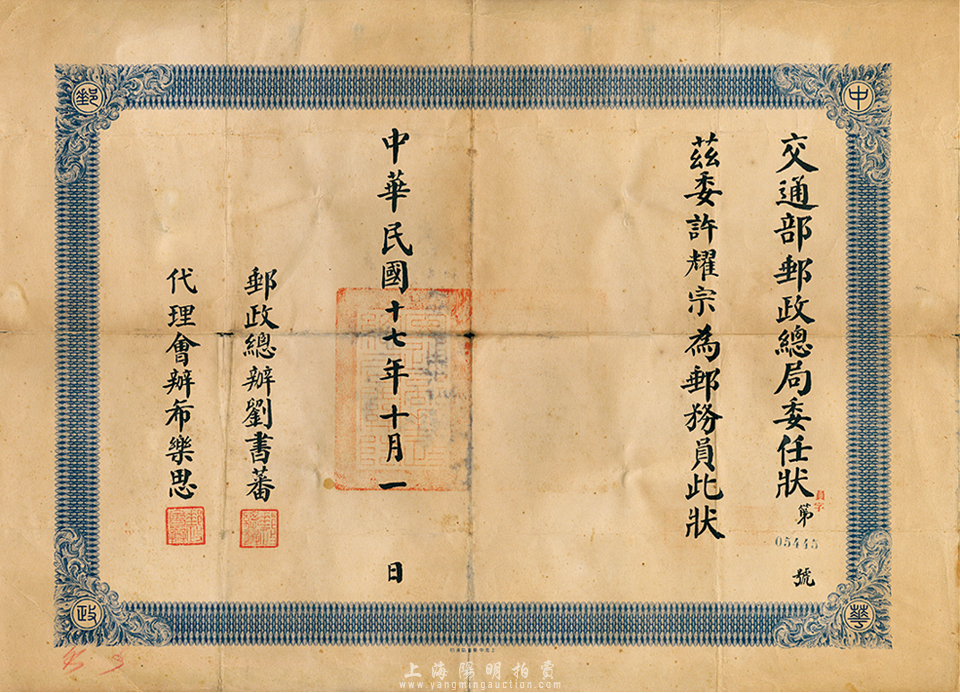 交通部郵政總局委任狀
員字
第
05445
號
茲委許耀宗為郵務員此狀
中華民國十七年十月一日
郵政總辦劉書蕃
代理會辦布樂思
中
華
郵
政
上海陽明拍賣
www.yangmingauction.com